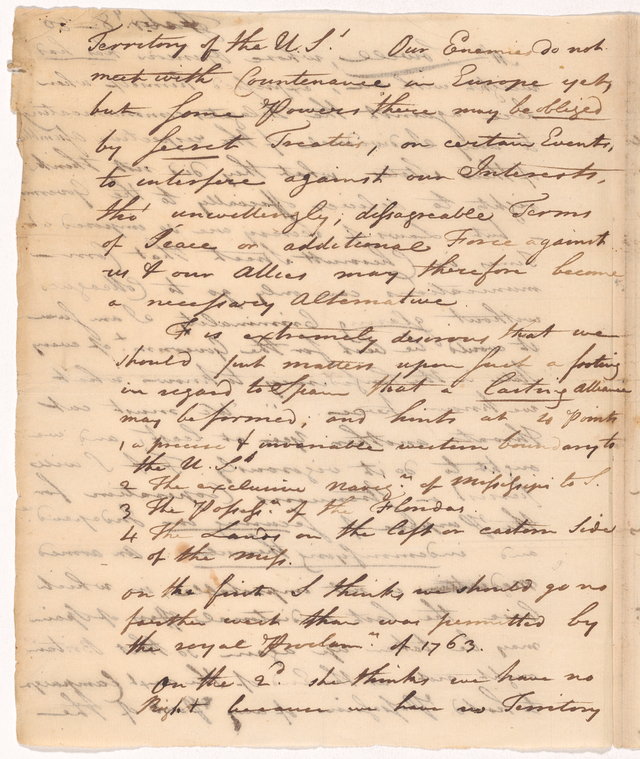 Territory of the U.S.ˢ Our Enemies do not
meet with Countenance in Europe yet,
but some Powers there may be obliged
by secret Treaties, on certain Events,
to interfere against our Interests,
tho' unwillingly; dissagreable Terms
of Peace or additional Force against
us & our Allies may therefore become
a necessary Alternative.
F is extremely desirous that we
should put matters upon such a footing
in regard to Spain that a lasting alliance
may be formed, and hints at 4 Points
1, a precise & invariable western boundary to
the U.S.ˢ
2 The exclusive Navigⁿ of Missisipi to S.
3 The Possesⁿ of the Floridas.
4 The Lands on the left or eastern side
of the Miss.
on the first S. thinks we should go no
farther west than was permitted by
the royal Proclamⁿ of 1763.
On the 2ᵈ. she thinks we have no
Right because we have no Territory